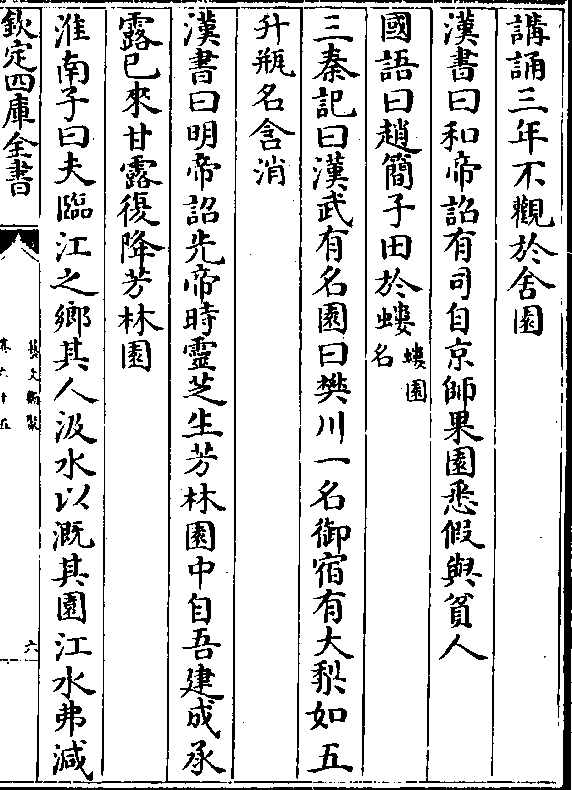 講誦三年不觀於舍園
漢書曰和帝詔有司自京師果園悉假與貧人
國語曰趙簡子田於螻螻園名
三秦記曰漢武有名園曰樊川一名御宿有大梨如五
升瓶名含消
漢書曰明帝詔先帝時靈芝生芳林園中自吾建成承
露已來甘露復降芳林園
淮南子曰夫臨江之鄉其人汲水以溉其園江水弗減
欽定四庫全書
藝文類聚
卷六十五
六